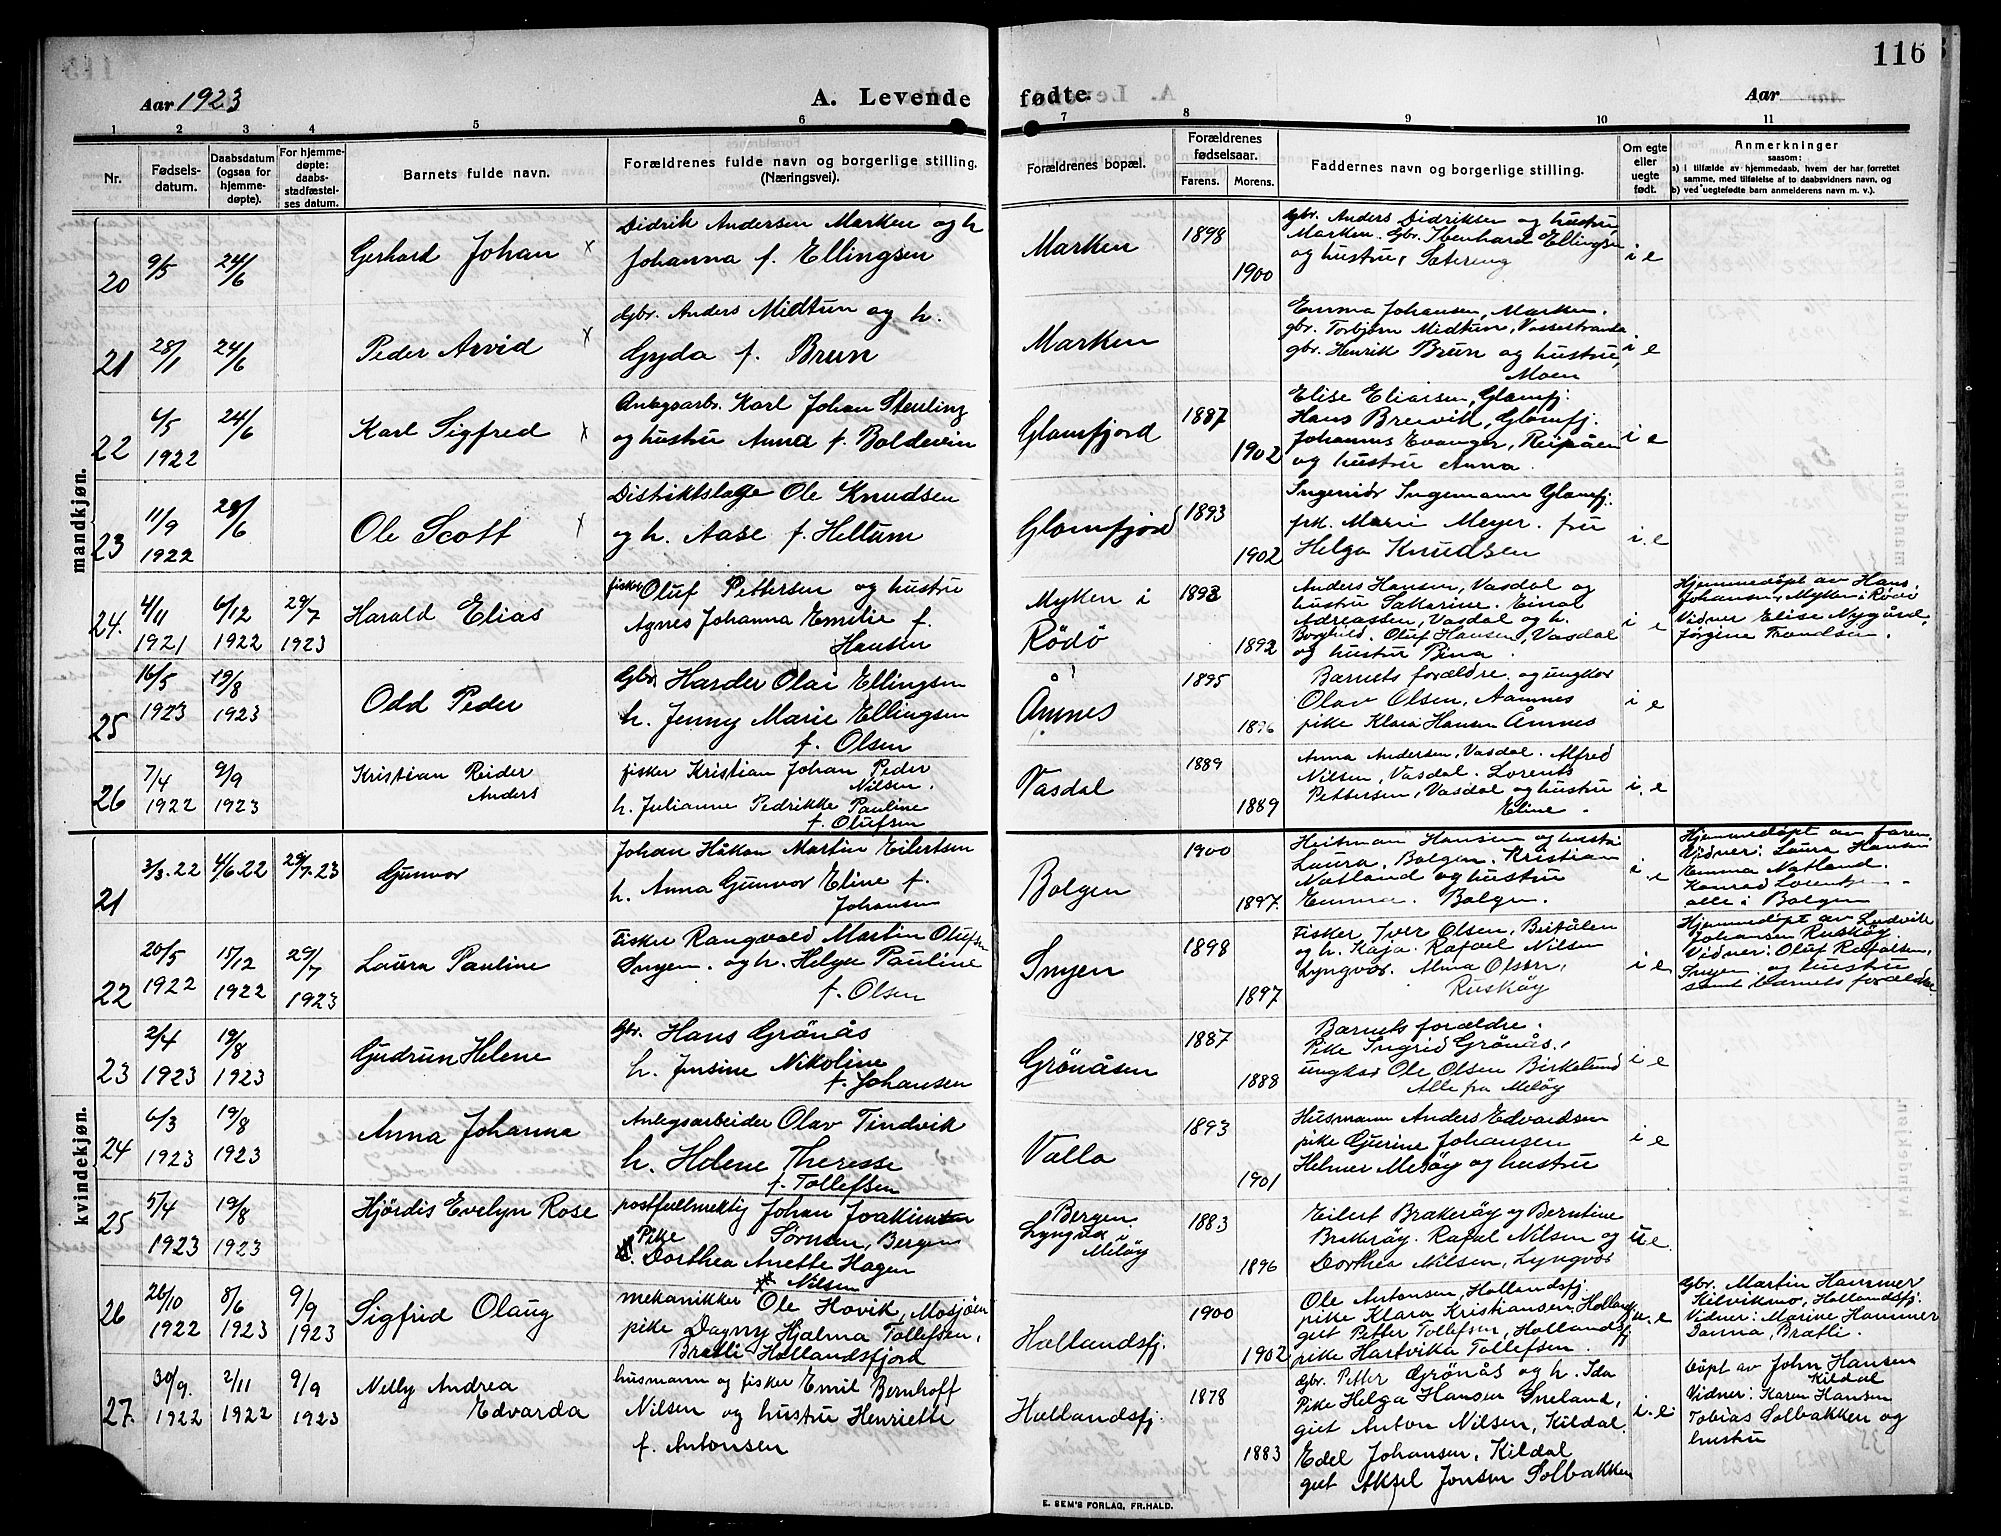 116
Aar 1923
A. Levende
fødte.
Aar
1 2 3 4 5 6 7 8 9 10 11
Nr.
Fødselsdatum.
Daabsdatum (ogsaa for hjemmedøpte).
For hjemmedøpte: daabsstadfæstelses datum.
Barnets fulde navn.
Forældrenes fulde navn og borgerlige stilling.
(Næringsvei).
Forældrenes bopæl.
Forældrenes fødselsaar.
Farens. Morens.
Faddernes navn og borgerlige stilling.
Om egte eller uegte født.
Anmerkninger
saasom:
a) i tilfælde av hjemmedaab, hvem der har forrettet
samme, med tilføielse af to daabsvidners navn, og
b) ved uegtefødte barn anmelderens navn m. v.).
mandkjøn.
20 9/5 24/6 Gerhard Johan x
Didrik Andersen Marken og h
Johanna f. Ellingsen
Marken 1898 1900
Gbr. Anders Didriksen og hustru
Marken. Gbr. Ibenhard Ellingsen
og hustru, Sætereng
i e
21 28/1 24/6 Peder Arvid x
Gbr. Anders Midtun og h.
Gyda f. Brun
Marken
Emma Johansen, Marken.
gbr. Torbjørn Midtun, Vassestranda
gbr. Henrik Brun og hustru,
Moen
i e
22 6/5 1922 24/6 Karl Sigfred x
Anlegsarb. Karl Johan Stenling
og hustru Anna f. Boldevin
Glomfjord 1887 1902
Elise Eliassen, Glomfj.
Hans Breivik, Glomfj.
Johannes Evanger, Reipåen
og hustru Anna.
i e
23 11/9 1922 28/6 Ole Scott x
Distriktslæge Ole Knudsen
og h. Aase f. Hellum
Glomfjord 1893 1902
Ingeniør Ingemann Glomfj.
frk. Marie Meyer. fru
Helga Knudsen
i. e
24. 4/11 1921 6/12 1922 29/7 1923 Harald Elias
fisker Oluf Pettersen og hustru
Agnes Johanna Emilie f.
Hansen
Myken i
Rödö
1892
Anders Hansen, Vasdal og
hustru Sakarine. Einar
Adreassen, Vasdal og h.
Borghild. Oluf Hansen, Vasdal
og hustru Bina.
i e
Hjemmedøpt av Hans
Johansen, Myken i Rødø
Vidner Elise Nygård,
Jørgine Trondsen.
25 16/5 1923 19/8 1923 Odd Peder
Gbr. Harder Olai Ellingsen
h. Jenny Marie Ellingsen
f. Olsen
Åmnes 1895 1896
Barnets forældre. og ungkar
Olav Olsen, Aamnes
pike Klara Hansen Åmnes
i e
26 7/4 1922 9/9 1923 Kristian Reider
Anders
fisker Kristian Johan Peder
Nilsen.
h. Julianne Pedrikke Pauline
f. Olufsen
Vasdal 1889 1889
Anna Andersen, Vasdal. Alfred
Nilsen, Vasdal. Lorents
Pettersen, Vasdal og hustru
Eline.
i. e
kvindekjøn.
21 3/3.22 4/6.22 29/7.23 Gunvor
Johan Håkon Martin Eilertsen
h. Anna Gunvor Eline f.
Johansen
Bolgen 1900 1897.
Heitman Hansen og hustru
Laura, Bolgen. Kristian
Natland og hustru
Emma. Bolgen.
i. e
Hjemmedøpt av faren.
Vidner: Laura Hansen
Emma Natland.
Konrad Lorentzen
alle i Bolgen
22 20/5 1922 15/12 1922 29/7 1923 Laura Pauline
Fisker Rangvald Martin Olufsen
Snyen. og h. Helga Pauline
f. Olsen
Snyen 1898 1897
Fisker Iver Olsen, Buitålen
og h. Kaja. Rafael Nilsen
Lyngvær. Alma Olsen,
Ruskøy
i e
Hjemmedøpt av Ludvik
Johansen Ruskøy.
Vidner: Oluf Rafalsen,
Snyen og hustru
samt barnets forældre.
23 2/4 1923 19/8 1923 Gudrun Helene
Gbr. Hans Grönås
h. Jensine Nikoline
f. Johansen
Grönåsen 1887 1888
Barnets forældre.
Pike Ingrid Grönås,
ungkar Ole Olsen Birkelund
Alle fra Meløy
i e
24 6/3 1923 19/8 1923 Anna Johanna
Anlegsarbeider Olav Tindvik
h. Helene Theresse
f. Tollefsen
Valla 1893 1901
Husmann Anders Edvardsen
pike Gjurine Johansen
Helmer Meløy og hustru
i e
25 5/4 1923 19/8 1923 Hjørdis Evelyn Rose
postfuldmektig Johan Joakim
Sørnsen, Bergen
Pike
Dorthea Anette Hagen
Nilsen
Bergen
Lyngvær i
Meløy
1883 1896
Eilert Brakerøy og Berntine
Brakerøy. Rafael Nilsen og
Dorthea Nilsen, Lyngvær
u e.
26 26/10 1922 8/6 1923 9/9 1923 Sigfrid Olaug
mekanikker Ole Hovik, Mosjøen
pike Dagny Hjelma Tollefsen,
Bratli Hollandsfjord
Hollandsfj. 1900 1902
Ole Antonsen, Hollandsfj.
pike Klara Kristiansen, Hollandsfj
gut Petter Tollefsen, Hollandsfj
pike Hartvika Tollefsen.
u. e
Gbr. Martin Hammer
Kilvikmo, Hollandsfj.
Vidner: Marine Hammer
Danna, Bratli.
27. 30/9. 1922 2/11 1922 9/9 1923 Nelly Andrea
Edvarda
husmann og fisker Emil Bernhoff
Nilsen og hustru Henriette
f. Antonsen
Hollandsfj. 1878 1883
Gbr. Petter Grönås og h. Ida
Pike Helga Hansen Sneland,
gut Anton Nilsen, Kildal.
Edel Johansen, Kildal
gut Aksel Jonson Solbakken
i. e.
Døpt av John Hansen
Kildal
Vidner: Karen Hansen
Tobias Solbakken og
hustru
E. SEM'S FORLAG, FR.HALD.